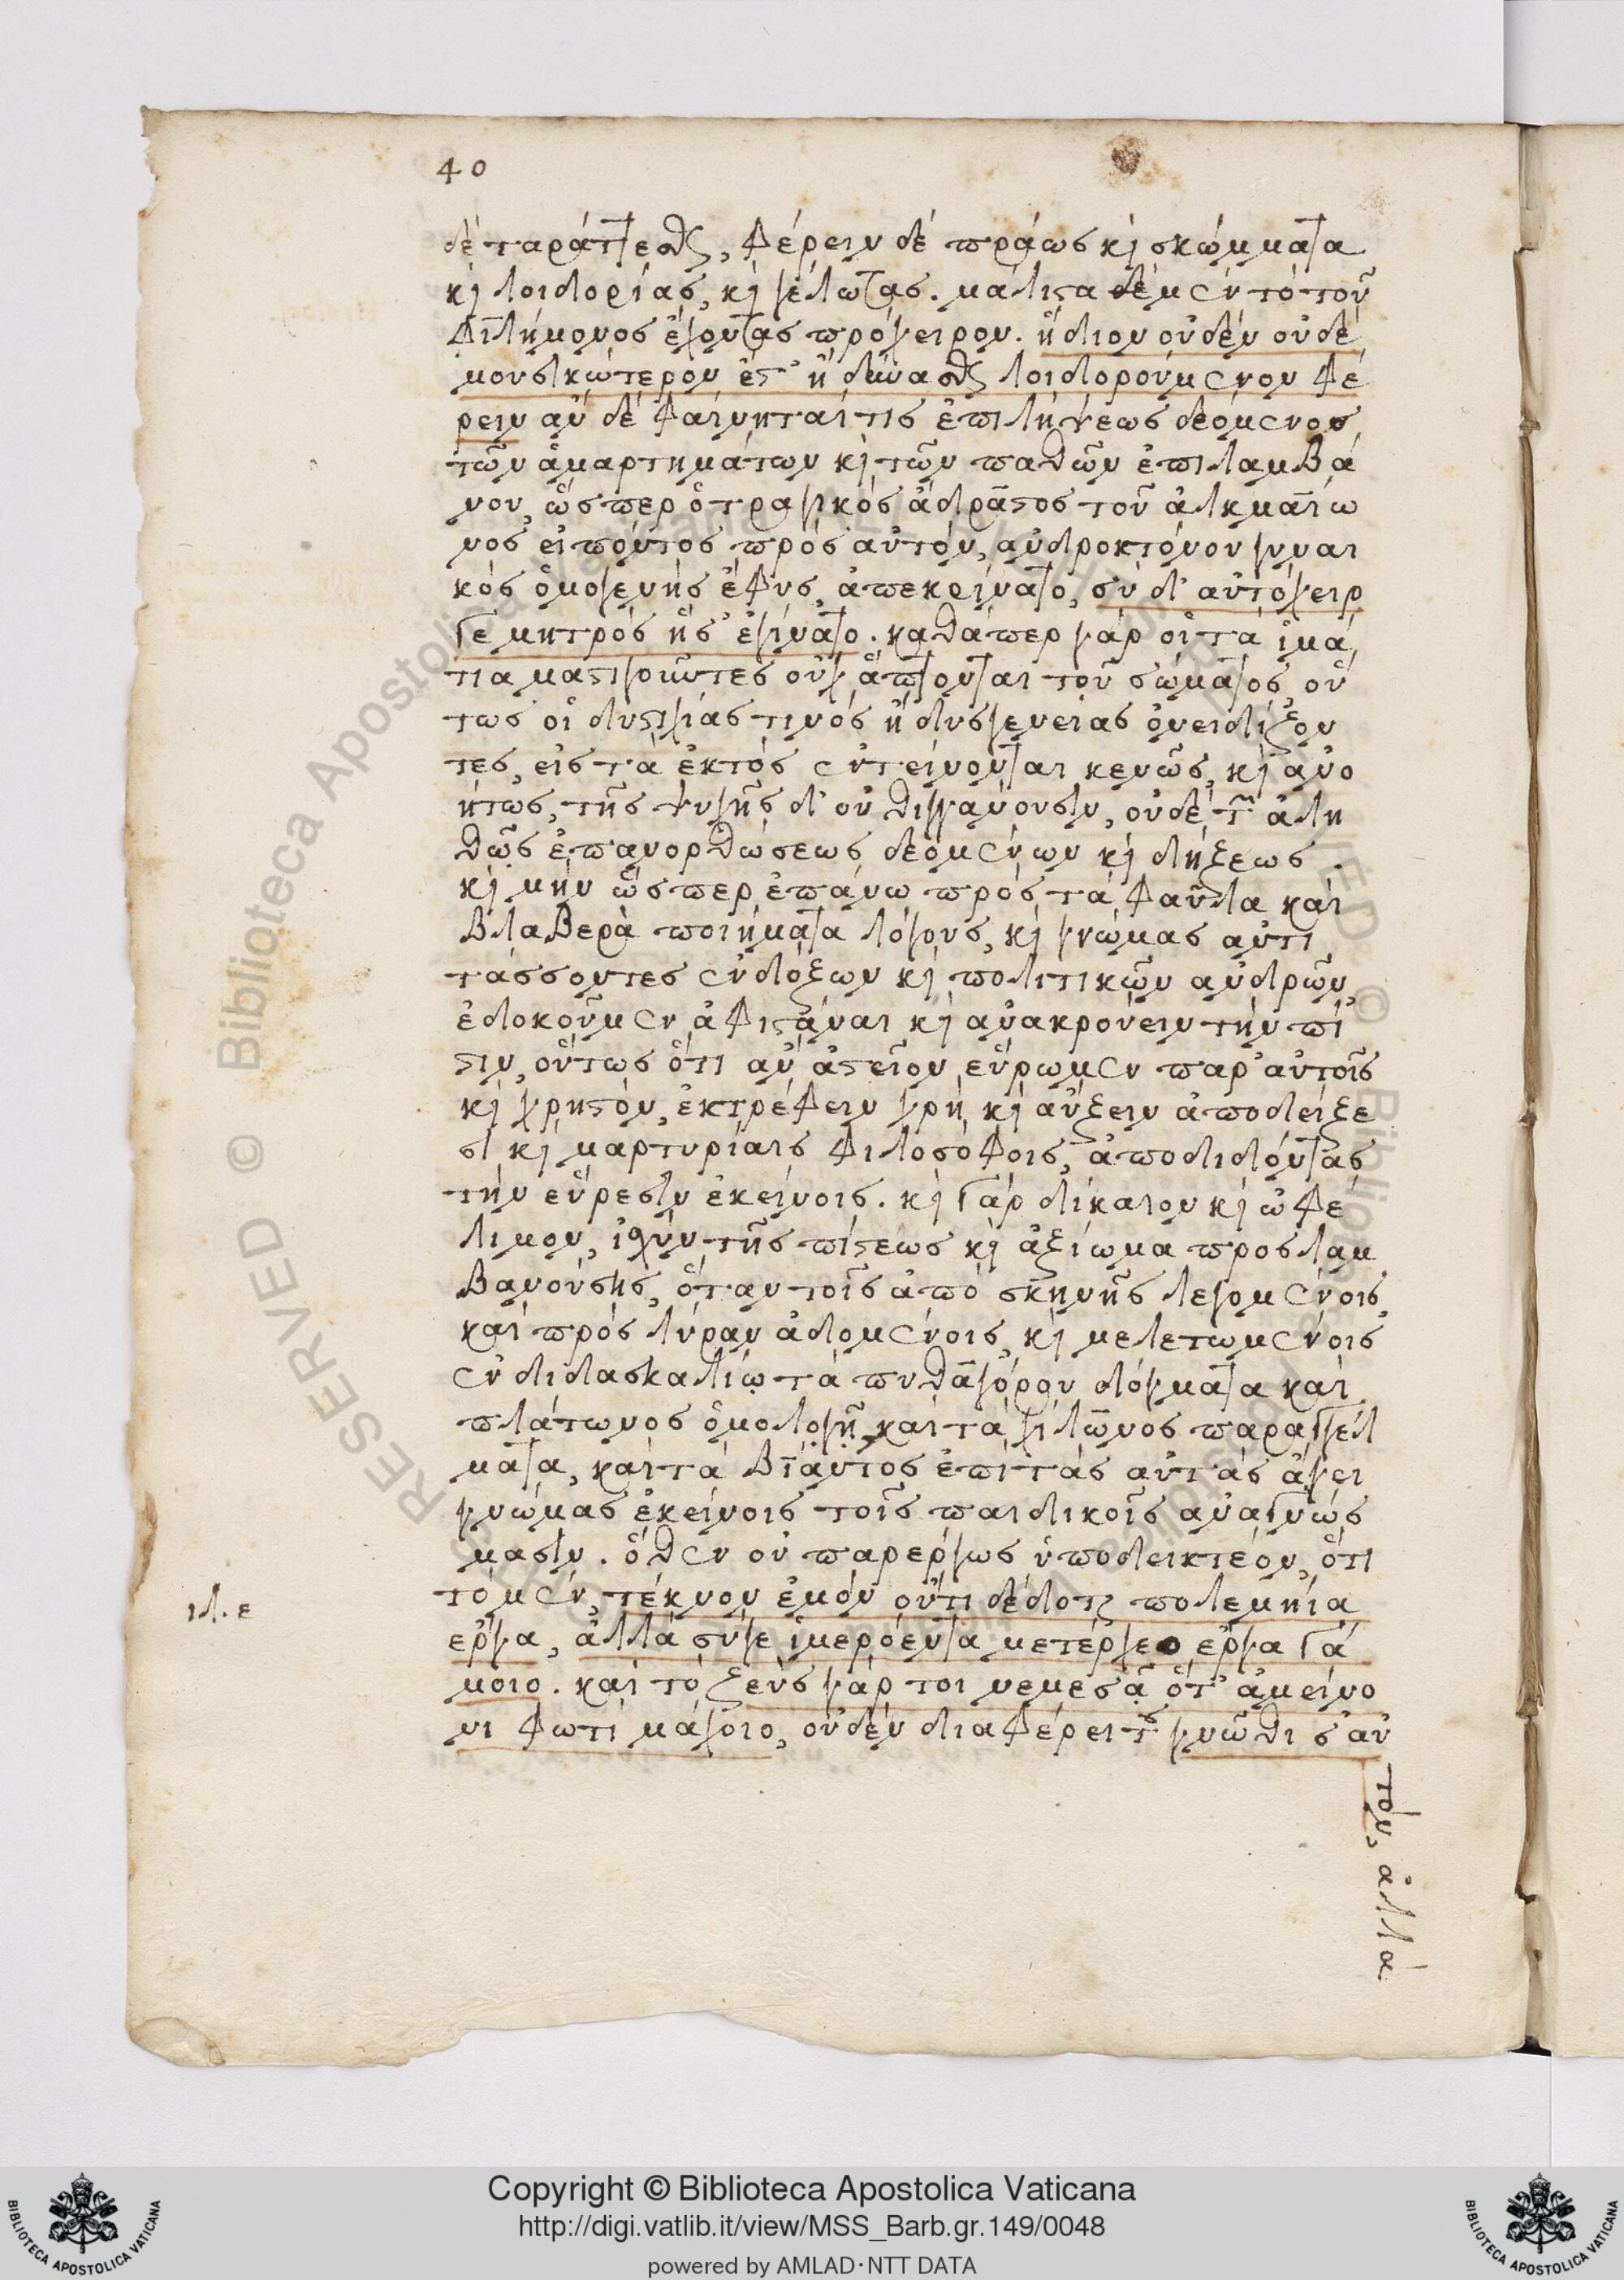 40
δὲ ταράττεσθαι, φέρειν δὲ πράως κὶ σκώμματα
κὶ λοιδορίας, κὶ γέλωτας. μάλιστα δὲ μὲν τὸ τοῦ
Φιλήμονος ἔχοντας πρόχειρον. ἥδιον οὐδὲν οὐδὲ
μουσικώτερον ἔστ' ἢ δύνασθαι λοιδορούμενον φέ
ρειν ἂν δὲ φαίνηταί τις ἐπιλήψεως δεόμενος
τῶν ἁμαρτημάτων κὶ τῶν παθῶν ἐπιλαμβά
νου, ὥσπερ ὁ τραγικός ἄδραστος τοῦ ἀλκμαίω
νος εἰπόντος πρὸς αὐτὸν, ἀνδροκτόνου γυναι
κὸς ὁμογενὴς ἔφυς, ἀπεκρίνατο, σὺ δ' αὐτόχειρ
γε μητρὸς ἥ σ' ἐγίνατο. καθάπερ γὰρ οἱ τὰ ἱμά
τια μαστιγοῦντες οὐχ ἅπτονται τοῦ σώματος, οὕ
τως οἱ δυστυχίας τινὸς ἢ δυσγενείας ὀνειδίζον
τες, εἰς τὰ ἐκτὸς ἐντείνονται κενῶς, κὶ ἀνο
ήτως, τῆς ψυχῆς δ' οὐ θιγγάνουσιν, οὐδὲ τῶν ἀλη
θῶς ἐπανορθώσεως δεομένων κὶ δήξεως.
κὶ μὴν ὥσπερ ἐπάνω πρὸς τὰ φαῦλα καὶ
βλαβερὰ ποιήματα λόγους, κὶ γνώμας ἀντι
τάσσοντες ἐνδόξων κὶ πολιτικῶν ἀνδρῶν,
ἐδοκοῦμεν ἀφιστάναι κὶ ἀνακρούειν τὴν πί
στιν, οὕτως ὅτι ἂν ἀστεῖον εὕρωμεν παρ' αὐτοῖς
κὶ χρηστὸν, ἐκτρέφειν χρὴ κὶ αὔξειν ἀποδείξε
σι κὶ μαρτυρίαις φιλοσόφοις, ἀποδιδόντας
τὴν εὕρεσιν ἐκείνοις. κὶ γὰρ δίκαιον κὶ ὠφέ
λιμον, ἰσχὺν τῆς πίστεως κὶ ἀξίωμα προσλαμ
βανούσης, ὅταν τοῖς ἀπὸ σκηνῆς λεγομένοις,
καὶ πρὸς λύραν ᾀδομένοις, κὶ μελετωμένοις
ἐν διδασκαλίῳ τὰ πυθαγόρου δόγματα καὶ
πλάτωνος ὁμολογῇ, καὶ τὰ χίλωνος παραγγέλ
ματα, καὶ τὰ βίαντος ἐπὶ τὰς αὐτὰς ἄγει
γνώμας ἐκείνοις τοῖς παιδικοῖς ἀναγνώσ
μασιν. ὅθεν οὐ παρέργως ὑποδεικτέον, ὅτι
τὸ μὲν, τέκνον ἐμὸν οὔτι δέδοται πολεμήϊα
ἔργα, ἀλλὰ σύγε ἱμερόεντα μετέρχεο ἔργα γά
μοιο. καὶ τὸ ζεὺς γάρ τοι νεμεσᾷ ὅτ' ἀμείνο
νι φωτὶ μάχοιο, οὐδὲν διαφέρει τοῦ γνῶθι σαυ
τὸν, ἀλλὰ
ιλ. ε
RESERVED © Biblioteca Apostolica Vaticana
Copyright © Biblioteca Apostolica Vaticana
http://digi.vatlib.it/view/MSS_Barb.gr.149/0048
powered by AMLAD·NTT DATA
BIBLIOTECA APOSTOLICA VATICANA
BIBLIOTECA APOSTOLICA VATICANA